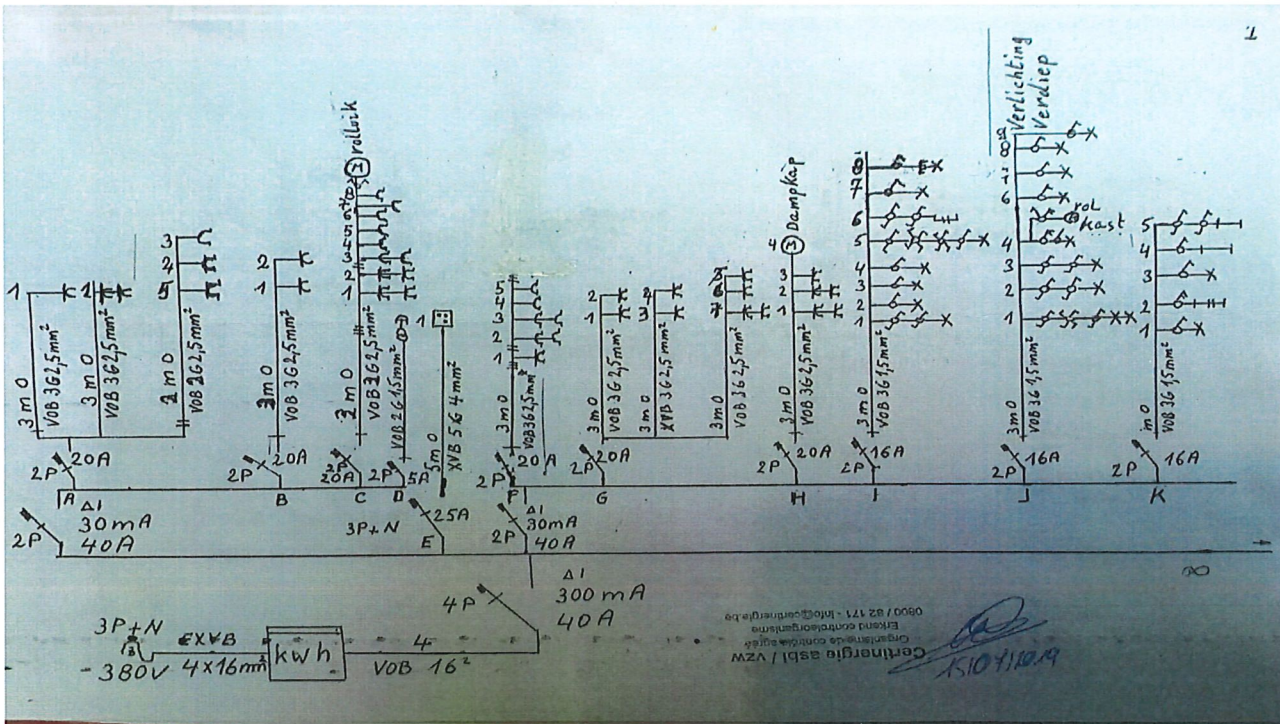 1
Verlichting
Verdiep
rolluik
Dampkap
rol
kast
3 m 0
VOB 3G2,5mm²
3 m 0
VOB 3G2,5mm²
2 m 0
VOB 2G2,5mm²
3 m 0
VOB 3G2,5mm²
2 m 0
VOB 2G2,5mm²
VOB 2G1,5mm²
5 m 0
XVB 5G4mm²
3 m 0
VOB 3G2,5mm²
3 m 0
VOB 3G2,5mm²
3 m 0
XVB 3G2,5mm²
3 m 0
VOB 3G2,5mm²
3 m 0
VOB 3G2,5mm²
3 m 0
VOB 3G1,5mm²
3 m 0
VOB 3G1,5mm²
m 0
VOB 3G1,5mm²
2P 20A
2P 20A
20A
2P 5A
2P 20A
2P 20A
2P 20A
2P 16A
2P 16A
2P 16A
A B C D F G H I J K
Δ I
30mA
2P 40A
3P+N 25A
E
Δ I
30mA
2P 40A
Δ I
300mA
4P 40A
3P+N
EXVB
380V 4x16mm²
kwh
4
VOB 16²
Certinergie asbl / vzw
Organisme de contrôle agréé
Erkend controleorganisme
0800 / 82 171 - info@certinergie.be